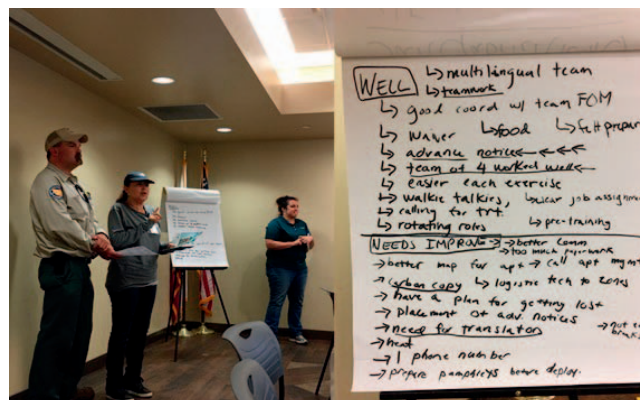 WELL ↳ multilingual team
↳ teamwork
↳ good coord w/ team FOM
↳ waiver ↳ food ↳ felt prepar
↳ advance notice ← ← ← ←
↳ team of 4 worked well ←
↳ easier each exercise
↳ walkie talkies, ↳ clear job assignm
↳ calling for trt.
↳ rotating roles ↳ pre-training
NEEDS IMPROV → → better comm
→ too much paperwork
→ better map for apt → call apt mgmt
→ carbon copy ↳ logistic tech to zones
→ have a plan for getting lost
→ placement of adv. notices
→ need for translators
→ heat
→ 1 phone number
→ prepare pamphleys before deploy.
WELL